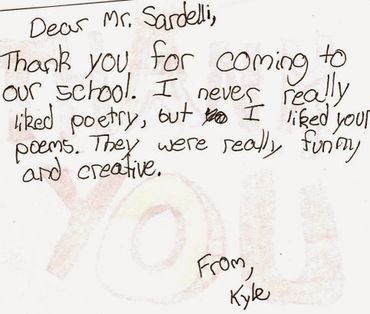 Dear Mr. Sardelli,
Thank you for coming to
our school. I never really
liked poetry, but I liked your
poems. They were really funny
and creative.
From,
Kyle
THANK
YOU